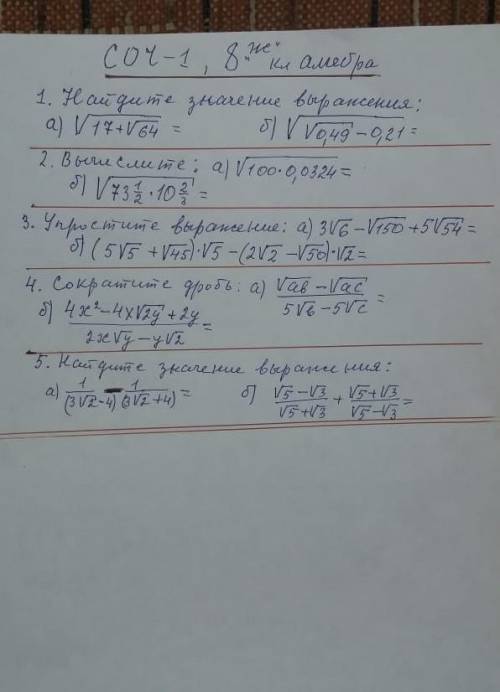 СОЧ-1, 8 "Ж" кл алгебра
1. Найдите значение выражения:
а) √(17+√64) = б) √(√0,49 − 0,21) =
2. Вычислите: а) √(100·0,0324) =
б) √(73 1/2 · 10 2/3) =
3. Упростите выражение: а) 3√6 − √150 + 5√54 =
б) (5√5 + √45)·√5 − (2√2 − √50)·√2 =
4. Сократите дробь: а) (√ab − √ac)/(5√b − 5√c) =
б) (4x² − 4x√2y + 2y)/(2x√y − y√2) =
5. Найдите значение выражения:
а) 1/(3√2−4) − 1/(3√2+4) = б) (√5−√3)/(√5+√3) + (√5+√3)/(√5−√3) =